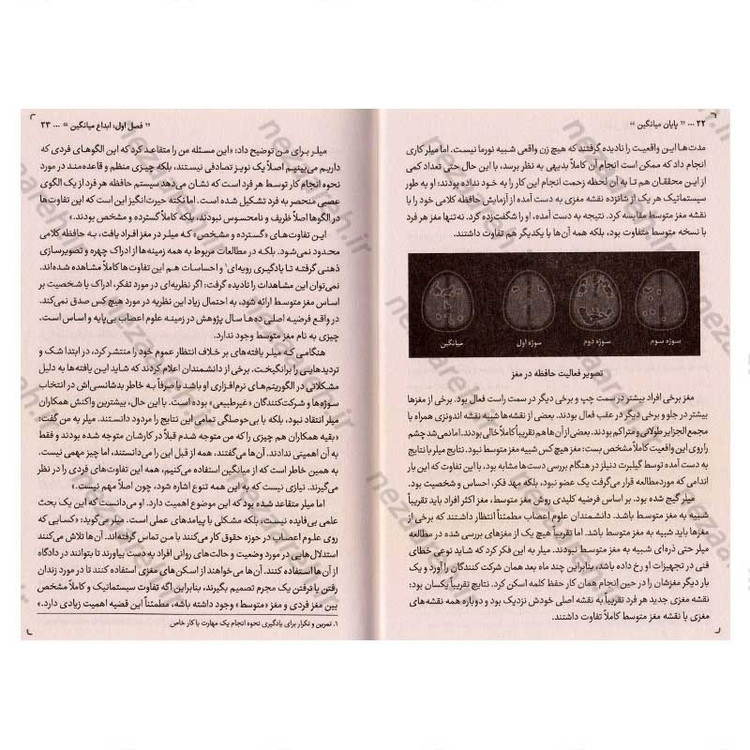 ۲۲ ... « پایان میانگین »
مدت‌ها این واقعیت را نادیده گرفتند که هیچ زن واقعی شبیه نورما نیست. اما میلر کاری
انجام داد که ممکن است انجام آن کاملاً بدیهی به نظر برسد، با این حال حتی تعداد کمی
از این محققان هم تا به آن لحظه زحمت انجام این کار را به خود نداده بودند: او به طور
سیستماتیک هر یک از شانزده نقشه مغزی به دست آمده از آزمایش حافظه کلامی خود را با
نقشه مغز متوسط مقایسه کرد. نتیجه به دست آمده، او را شگفت‌زده کرد. نه‌تنها مغز هر فرد
با نسخه متوسط متفاوت بود، بلکه همه آن‌ها با یکدیگر هم تفاوت داشتند.
میانگین سوژه اول سوژه دوم سوژه سوم
تصویر فعالیت حافظه در مغز
مغز برخی افراد بیشتر در سمت چپ و برخی دیگر در سمت راست فعال بود. برخی از مغزها
بیشتر در جلو و برخی دیگر در عقب فعال بودند. بعضی از نقشه‌ها شبیه نقشه اندونزی همراه با
مجمع الجزایر طولانی و متراکم بودند. بعضی از آن‌ها هم تقریباً کاملاً خالی بودند. اما نمی‌شد چشم
را روی این واقعیت کاملاً مشخص بست: مغز هیچ کس شبیه مغز متوسط نبود. نتایج میلر با نتایج
به دست آمده توسط گیلبرت دنیلز در هنگام بررسی دست‌ها مشابه بود، با این تفاوت که این بار
اندامی که مورد مطالعه قرار می‌گرفت یک عضو نبود، بلکه مهد فکر، احساس و شخصیت بود.
میلر گیج شده بود. بر اساس فرضیه کلیدی روش مغز متوسط، مغز اکثر افراد باید تقریباً
شبیه به مغز متوسط باشد. دانشمندان علوم اعصاب مطمئناً انتظار داشتند که برخی از
مغزها باید شبیه به مغز متوسط باشد. اما تقریباً هیچ یک از مغزهای بررسی شده در مطالعه
میلر حتی ذره‌ای شبیه به مغز متوسط نبودند. میلر به این فکر کرد که شاید نوعی خطای
فنی در تجهیزات او رخ داده باشد، بنابراین چند ماه بعد همان شرکت کنندگان را آورد و یک
بار دیگر مغزشان را در حین انجام همان کار حفظ کلمه اسکن کرد. نتایج تقریباً یکسان بود:
نقشه مغزی جدید هر فرد تقریباً به نقشه اصلی خودش نزدیک بود و دوباره همه نقشه‌های
مغزی با نقشه مغز متوسط کاملاً تفاوت داشتند.
« فصل اول: ابداع میانگین » ... ۲۳
میلر برای من توضیح داد: «این مسئله من را متقاعد کرد که این الگوهای فردی که
داریم می‌بینیم اصلاً یک نویز تصادفی نیستند، بلکه چیزی منظم و قاعده‌مند در مورد
نحوه انجام کار توسط هر فرد است که نشان می‌دهد سیستم حافظه هر فرد از یک الگوی
عصبی منحصر به فرد تشکیل شده است. اما نکته حیرت‌انگیز این است که این تفاوت‌ها
در الگوها اصلاً ظریف و نامحسوس نبودند، بلکه کاملاً گسترده و مشخص بودند.»
این تفاوت‌های «گسترده و مشخص» که میلر در مغز افراد یافت، به حافظه کلامی
محدود نمی‌شود. بلکه در مطالعات مربوط به همه زمینه‌ها از ادراک چهره و تصویرسازی
ذهنی گرفته تا یادگیری رویه‌ای۱ و احساسات هم این تفاوت‌ها کاملاً مشاهده شده‌اند.
نمی‌توان این مشاهدات را نادیده گرفت: اگر نظریه‌ای در مورد تفکر، ادراک یا شخصیت بر
اساس مغز متوسط ارائه شود، به احتمال زیاد این نظریه در مورد هیچ کس صدق نمی‌کند.
در واقع فرضیه اصلی ده‌ها سال پژوهش در زمینه علوم اعصاب بی‌پایه و اساس است.
چیزی به نام مغز متوسط وجود ندارد.
هنگامی که میلر یافته‌های بر خلاف انتظار عموم خود را منتشر کرد، در ابتدا شک و
تردیدهایی را برانگیخت. برخی از دانشمندان اعلام کردند که شاید این یافته‌ها به دلیل
مشکلاتی در الگوریتم‌های نرم‌افزاری او باشد یا صرفاً به خاطر بدشانسی‌اش در انتخاب
سوژه‌ها و شرکت‌کنندگان «غیرطبیعی» بوده است. با این حال، بیشترین واکنش همکاران
میلر انتقاد نبود، بلکه با بی‌حوصلگی تمام این نتایج را مردود دانستند. میلر به من گفت:
«بقیه همکاران هم چیزی را که من متوجه شدم قبلاً در کارشان متوجه شده بودند و فقط
به آن اهمیتی ندادند. آن‌ها می‌گفتند، همه از قبل این را می‌دانستند، اما چیز مهمی نیست.
به همین خاطر است که از میانگین استفاده می‌کنیم، همه این تفاوت‌های فردی را در نظر
می‌گیرند. نیازی نیست که به این همه تنوع اشاره شود، چون اصلاً مهم نیست.»
اما میلر متقاعد شده بود که این موضوع اهمیت دارد. او می‌دانست که این یک بحث
علمی بی‌فایده نیست، بلکه مشکلی با پیامدهای عملی است. میلر می‌گوید: «کسانی که
روی علوم اعصاب در حوزه حقوق کار می‌کنند با من تماس گرفته‌اند. آن‌ها تلاش می‌کنند
استدلال‌هایی در مورد وضعیت و حالت‌های روانی افراد به دست بیاورند تا بتوانند در دادگاه
از آن‌ها استفاده کنند. آن‌ها می‌خواهند از اسکن‌های مغزی استفاده کنند تا در مورد زندان
رفتن یا نرفتن یک مجرم تصمیم بگیرند، بنابراین اگر تفاوت سیستماتیک و کاملاً مشخص
بین مغز فردی و مغز «متوسط» وجود داشته باشد، مطمئناً این قضیه اهمیت زیادی دارد.»
۱. تمرین و تکرار برای یادگیری نحوه انجام یک مهارت یا کار خاص
nezareh.ir